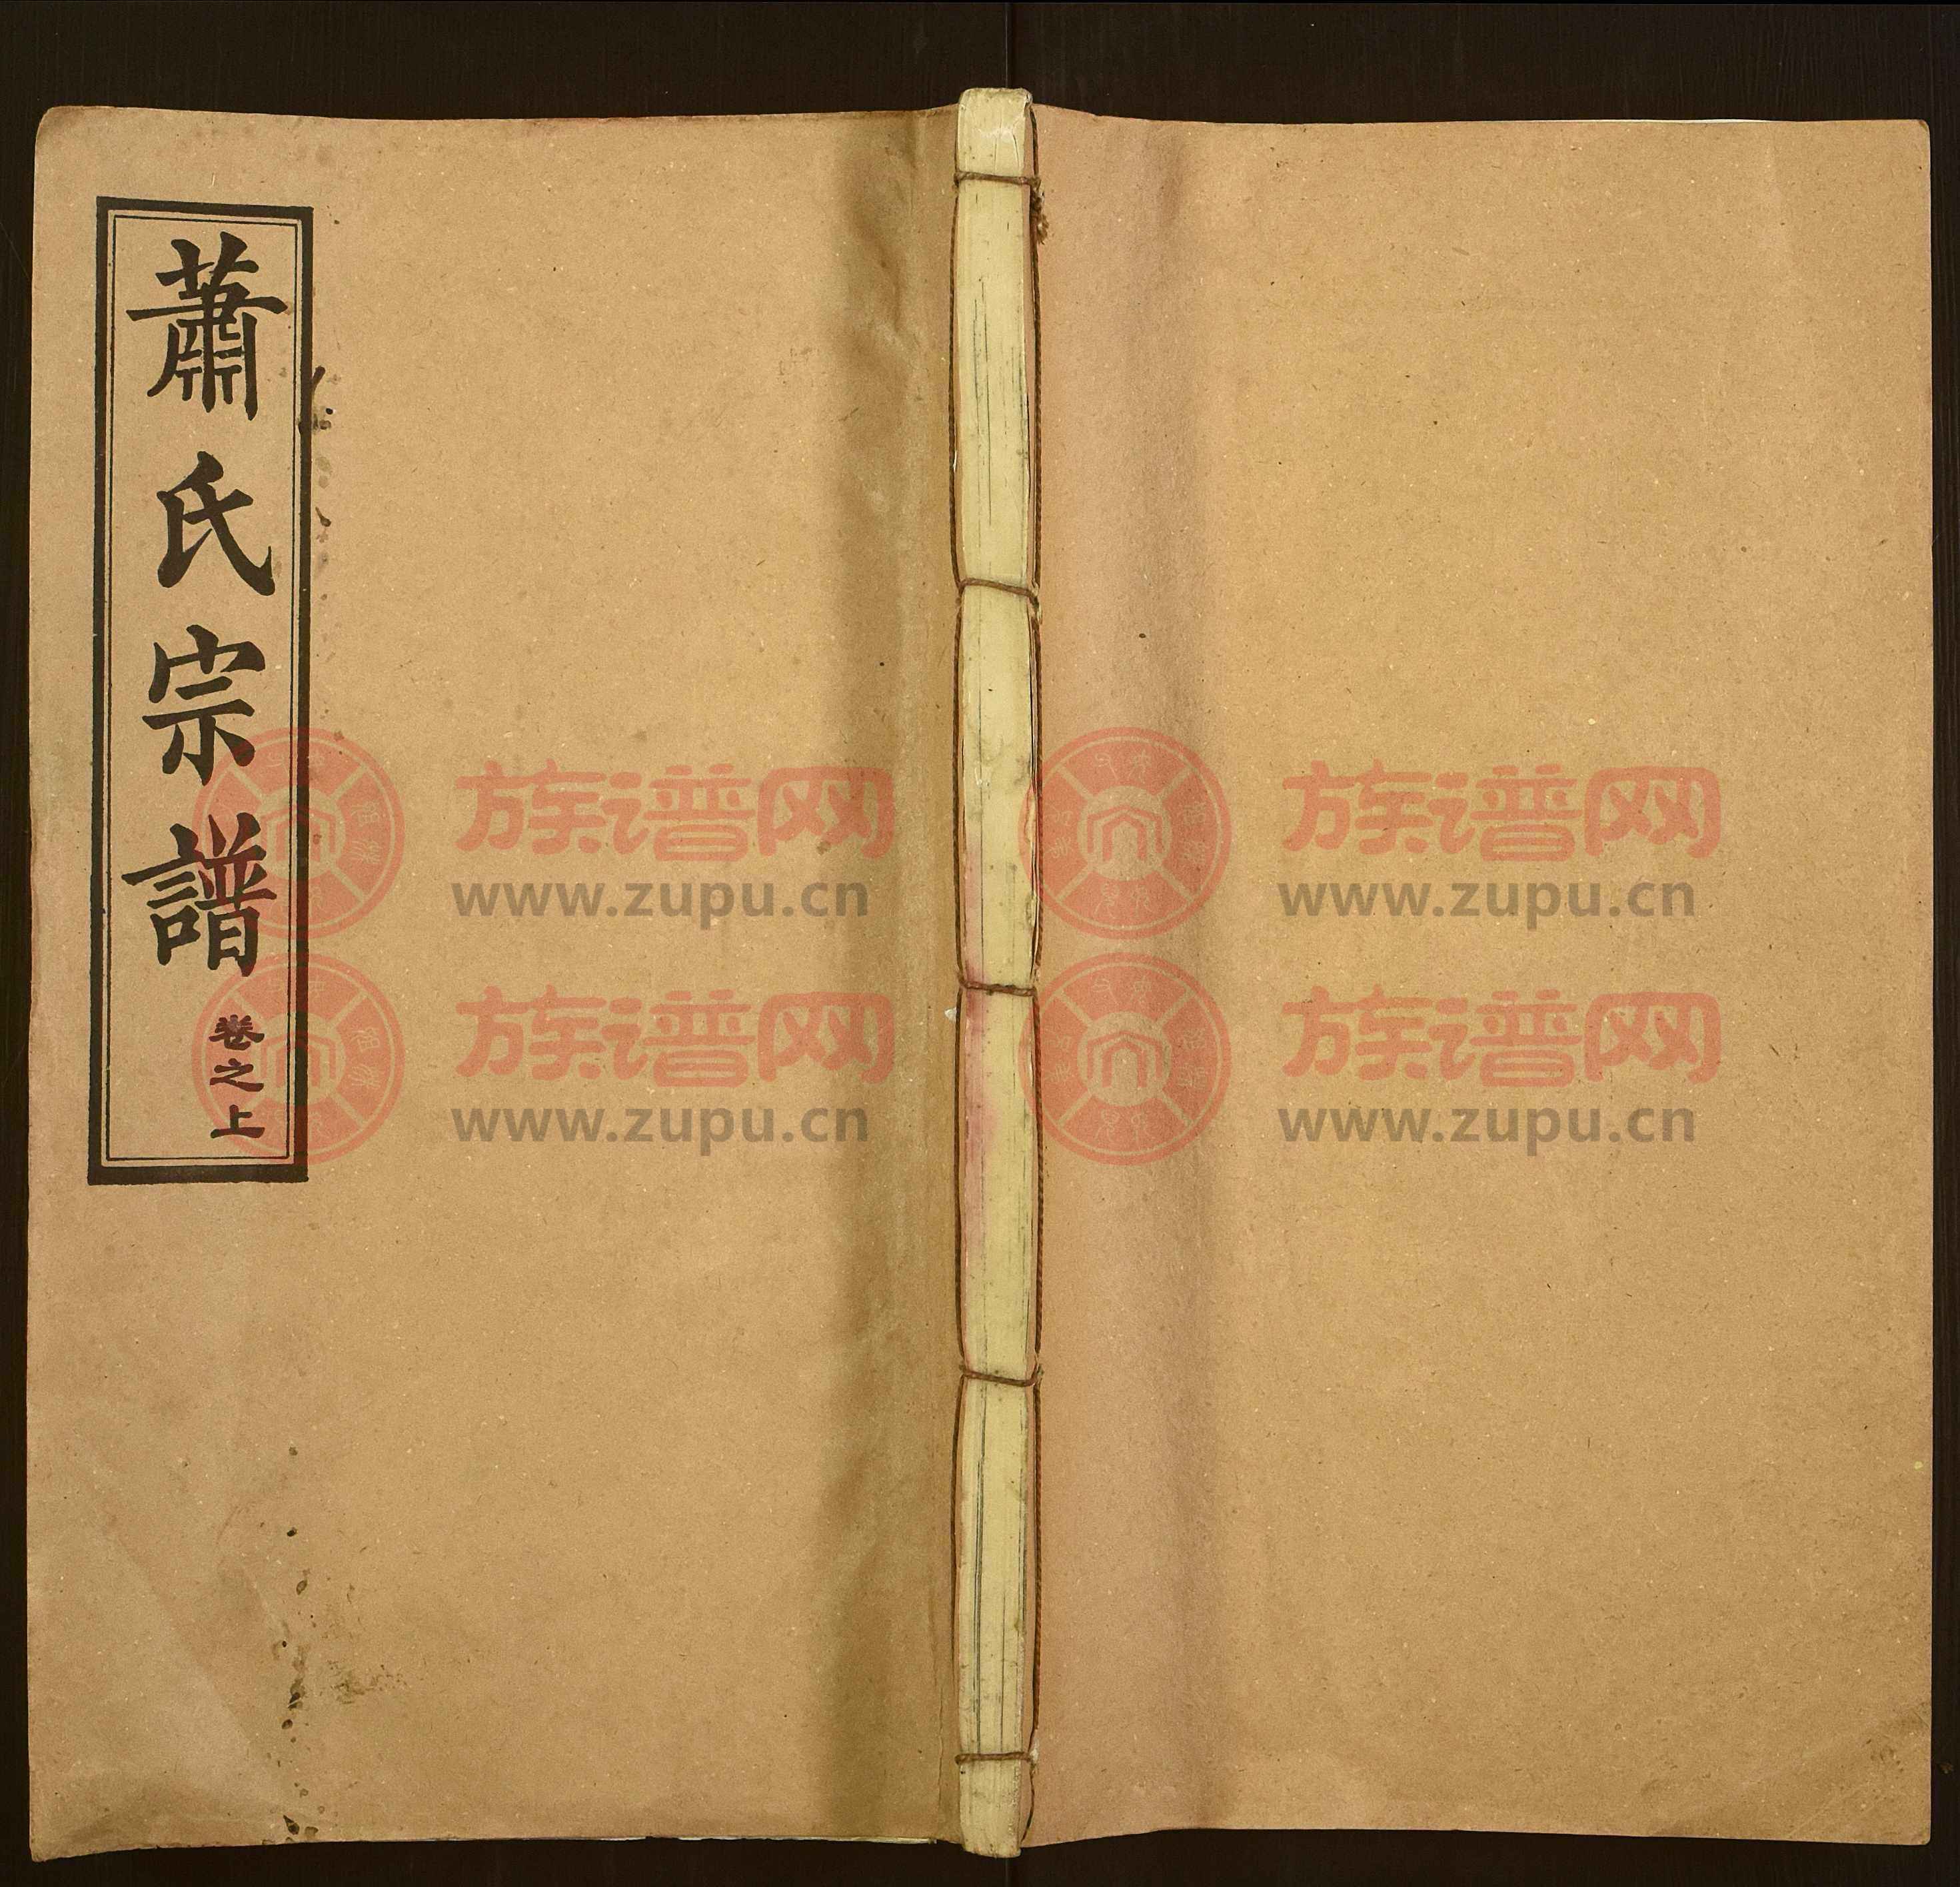 蕭氏宗譜
卷之上
族谱网
www.zupu.cn
族谱网
www.zupu.cn
族谱网
www.zupu.cn
族谱网
www.zupu.cn